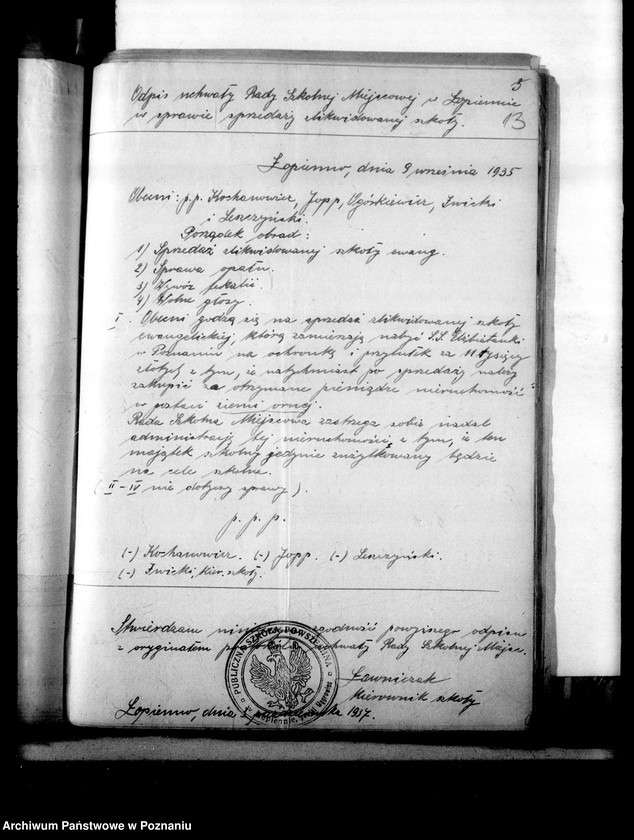 5
13
Odpis uchwały Rady Szkolnej Miejscowej w Łopiennie
w sprawie sprzedaży zlikwidowanej szkoły.
Łopienno, dnia 9 września 1935
Obecni: p.p. Kochanowicz, Jopp, Ogórkiewicz, Żwicki
i Leszczyński.
Porządek obrad:
1) Sprzedaż zlikwidowanej szkoły ewang.
2) Sprawa opału.
3) Wywóz fekalii.
4) Wolne głosy.
I. Obecni godzą się na sprzedaż zlikwidowanej szkoły
ewangelickiej, którą zamierzają nabyć S.S. Elżbietanki
w Poznaniu na ochronkę i przytułek za 11 tysięcy
złotych z tym, że natychmiast po sprzedaży należy
zakupić za otrzymane pieniądze nieruchomość
w postaci ziemi ornej.
Rada Szkolna Miejscowa zastrzega sobie nadal
administrację tej nieruchomości z tym, że ten
majątek szkolny jedynie zużytkowany będzie
na cele szkolne.
(II-IV nie dotyczy sprawy).
p. p. p.
(-) Kochanowicz. (-) Jopp. (-) Leszczyński.
(-) Żwicki, kier. szkoły.
Stwierdzam zgodność powyższego odpisu
z oryginałem uchwały Rady Szkolnej Miejsc.
PUBLICZNA SZKOŁA POWSZECHNA
Ławniczak
Kierownik szkoły
Łopienno, dnia 1937.
Archiwum Państwowe w Poznaniu